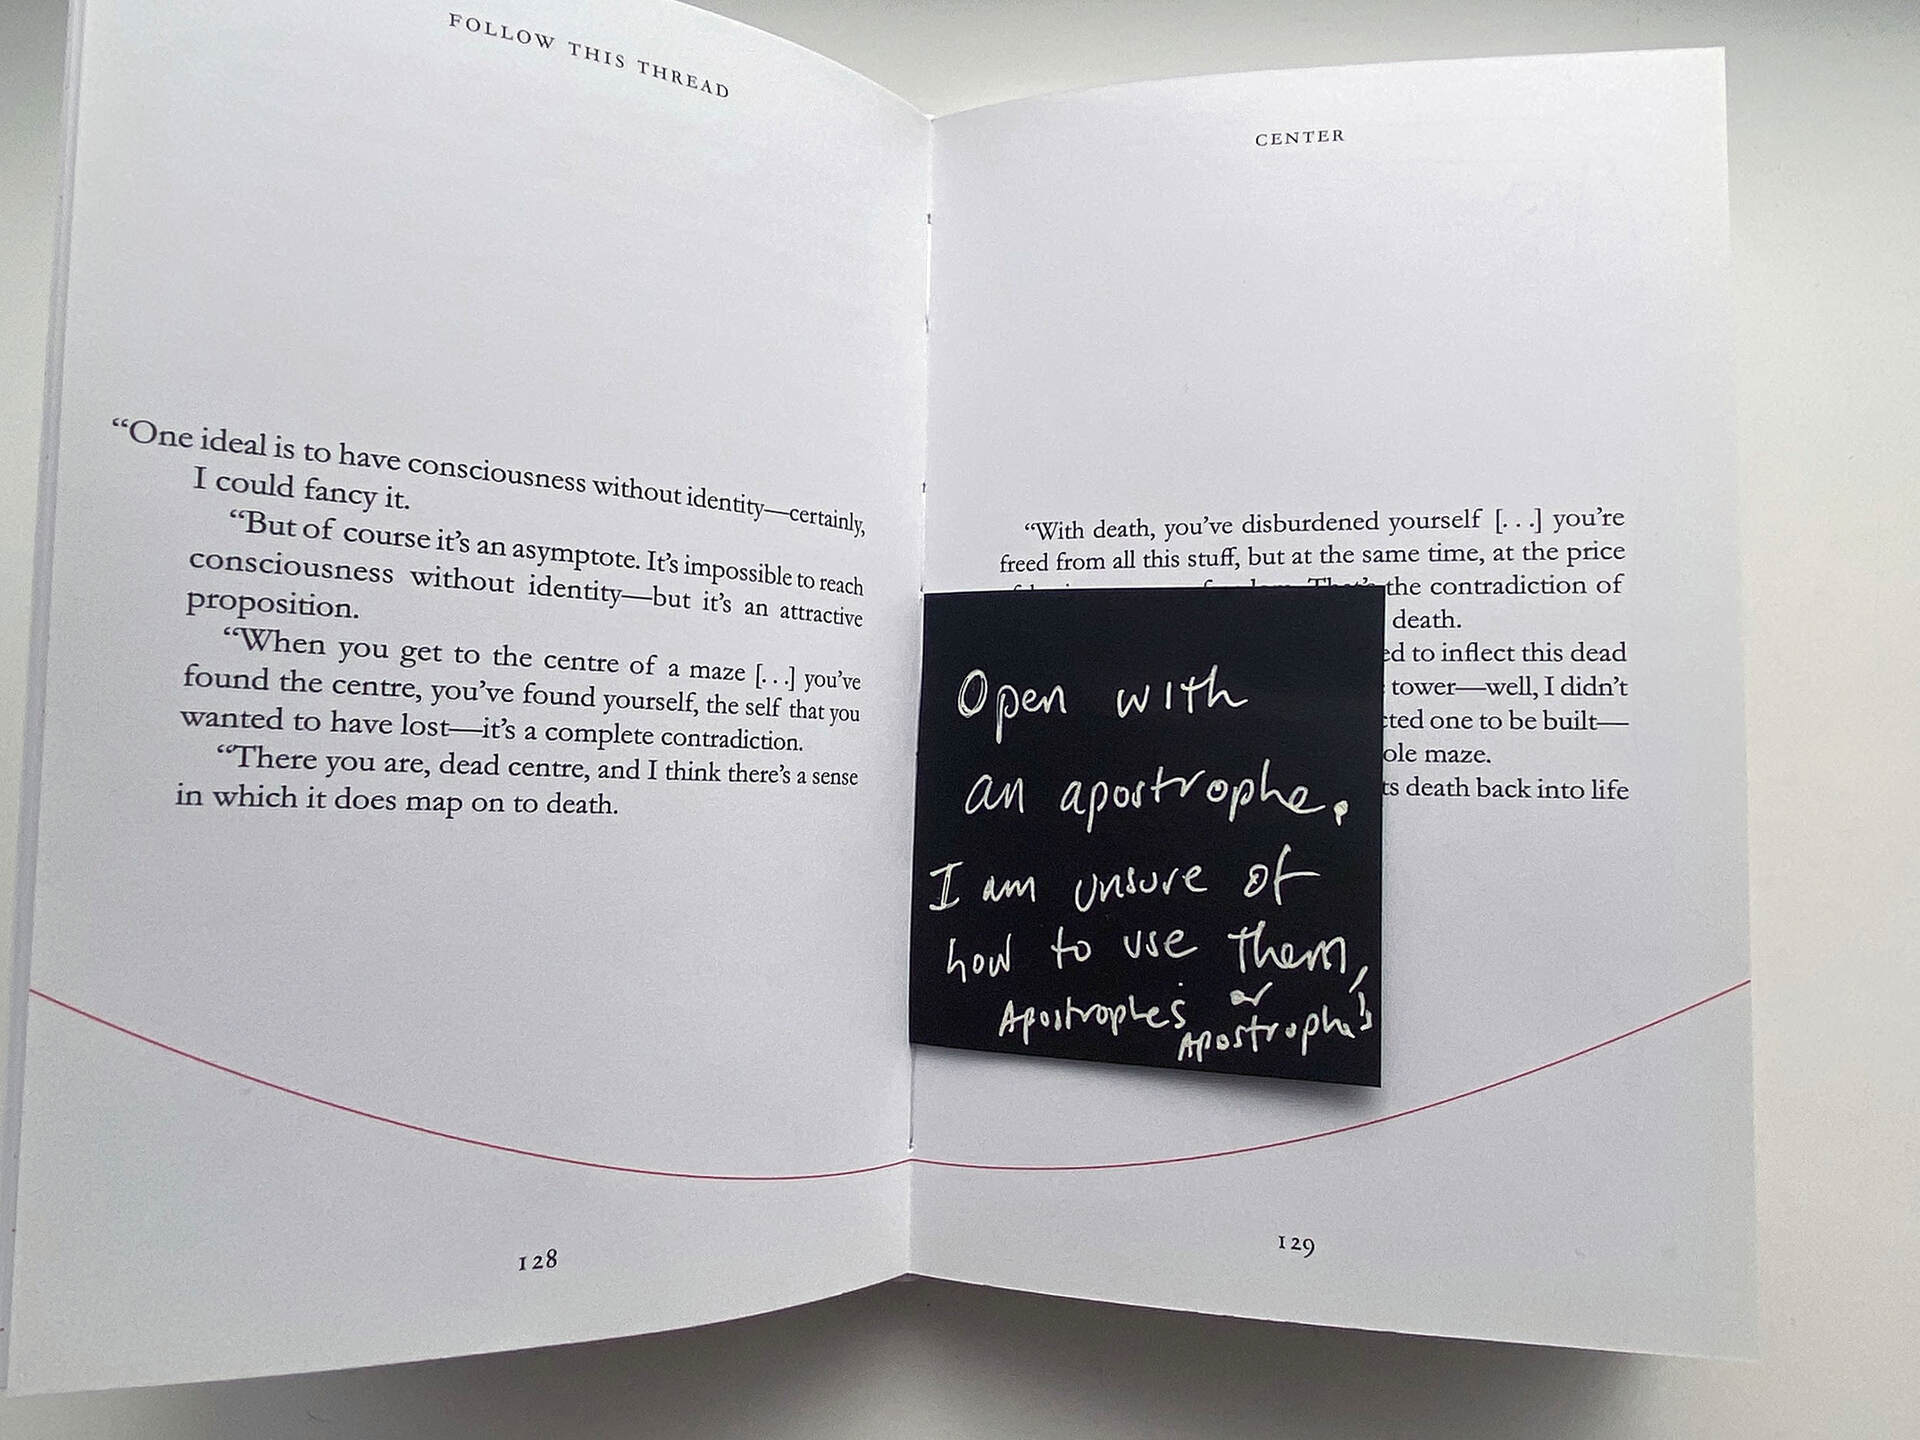 FOLLOW THIS THREAD
“One ideal is to have consciousness without identity—certainly,
I could fancy it.
“But of course it’s an asymptote. It’s impossible to reach
consciousness without identity—but it’s an attractive
proposition.
“When you get to the centre of a maze [. . .] you’ve
found the centre, you’ve found yourself, the self that you
wanted to have lost—it’s a complete contradiction.
“There you are, dead centre, and I think there’s a sense
in which it does map on to death.
128
CENTER
“With death, you’ve disburdened yourself [. . .] you’re
freed from all this stuff, but at the same time, at the price
That’s the contradiction of
death.
to inflect this dead
tower—well, I didn’t
one to be built—
maze.
death back into life
Open with
an apostrophe.
I am unsure of
how to use them,
Apostrophes or
Apostrophe's
129